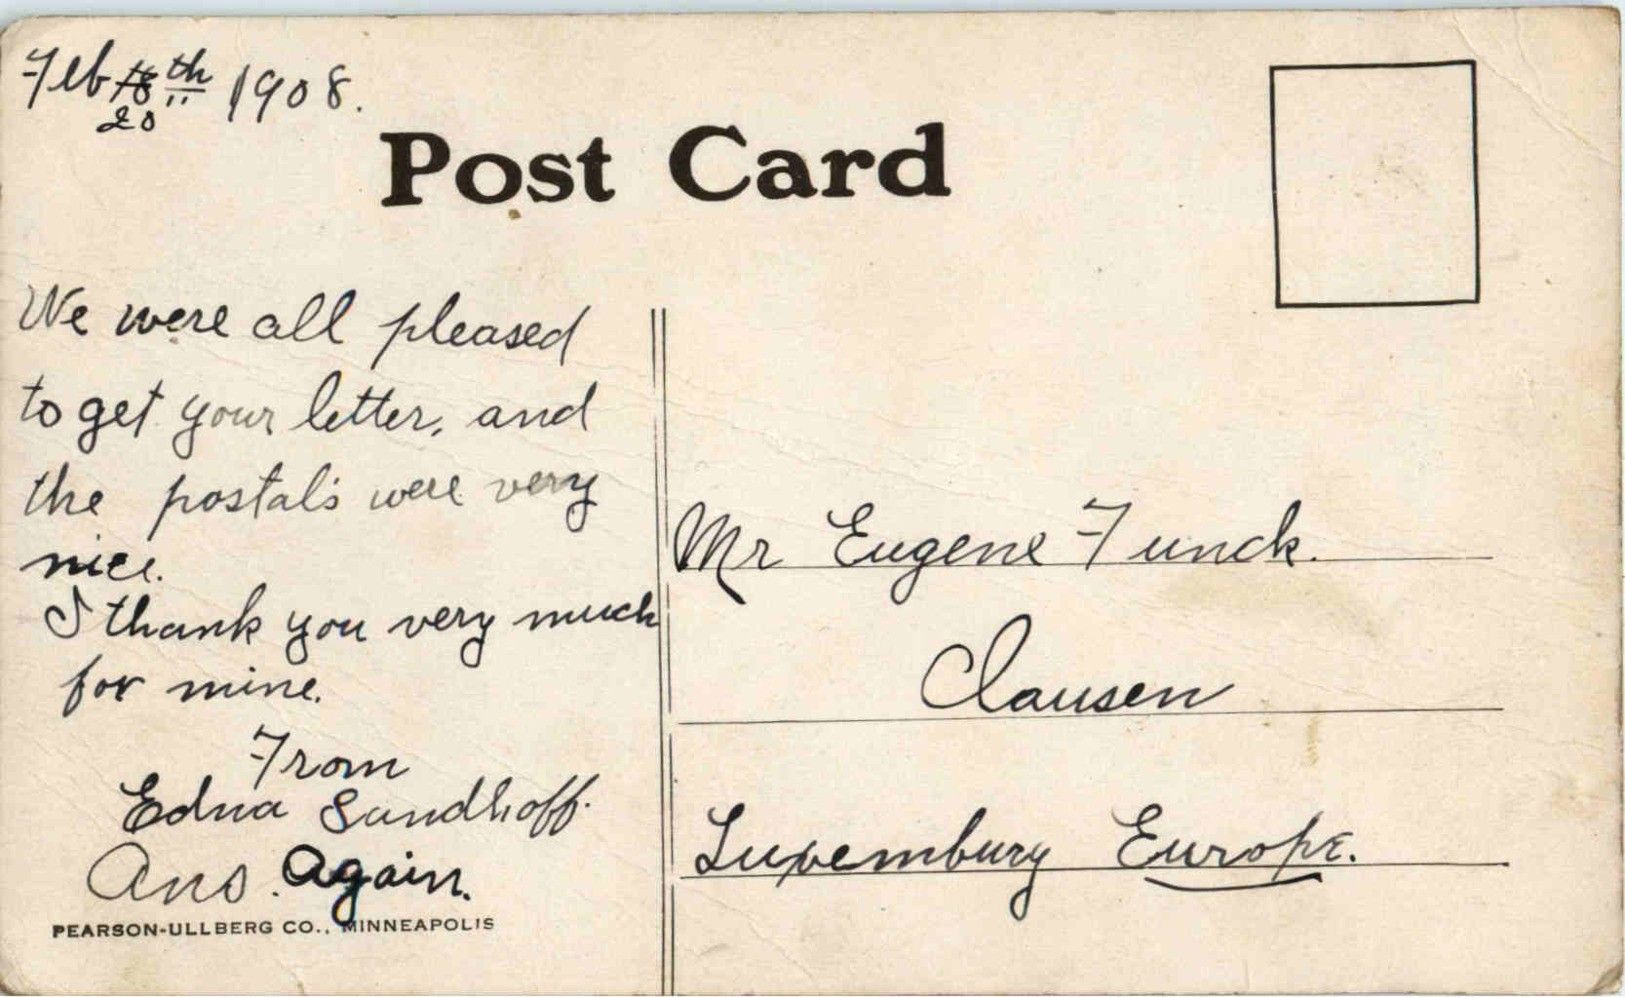 Feb 18th 1908.
20
Post Card
We were all pleased
to get your letter, and
the postal's were very
nice.
I thank you very much
for mine.
From
Edna Sandhoff.
Ans. Again.
PEARSON-ULLBERG CO., MINNEAPOLIS
Mr Eugene Funck.
Clausen
Luxemburg Europe.